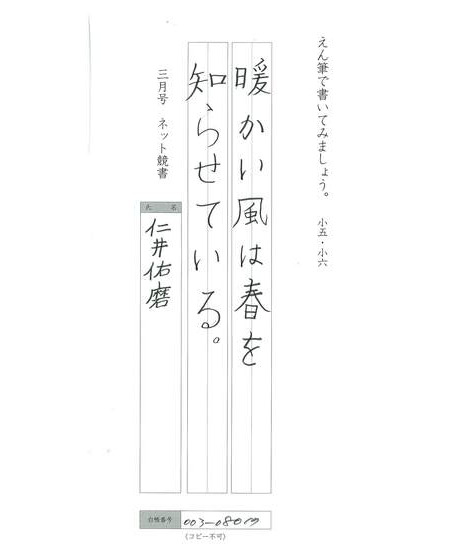 えん筆で書いてみましょう。 小五・小六
暖かい風は春を
知らせている。
三月号 ネット競書
氏 名
仁井佑磨
台帳番号
(コピー不可)